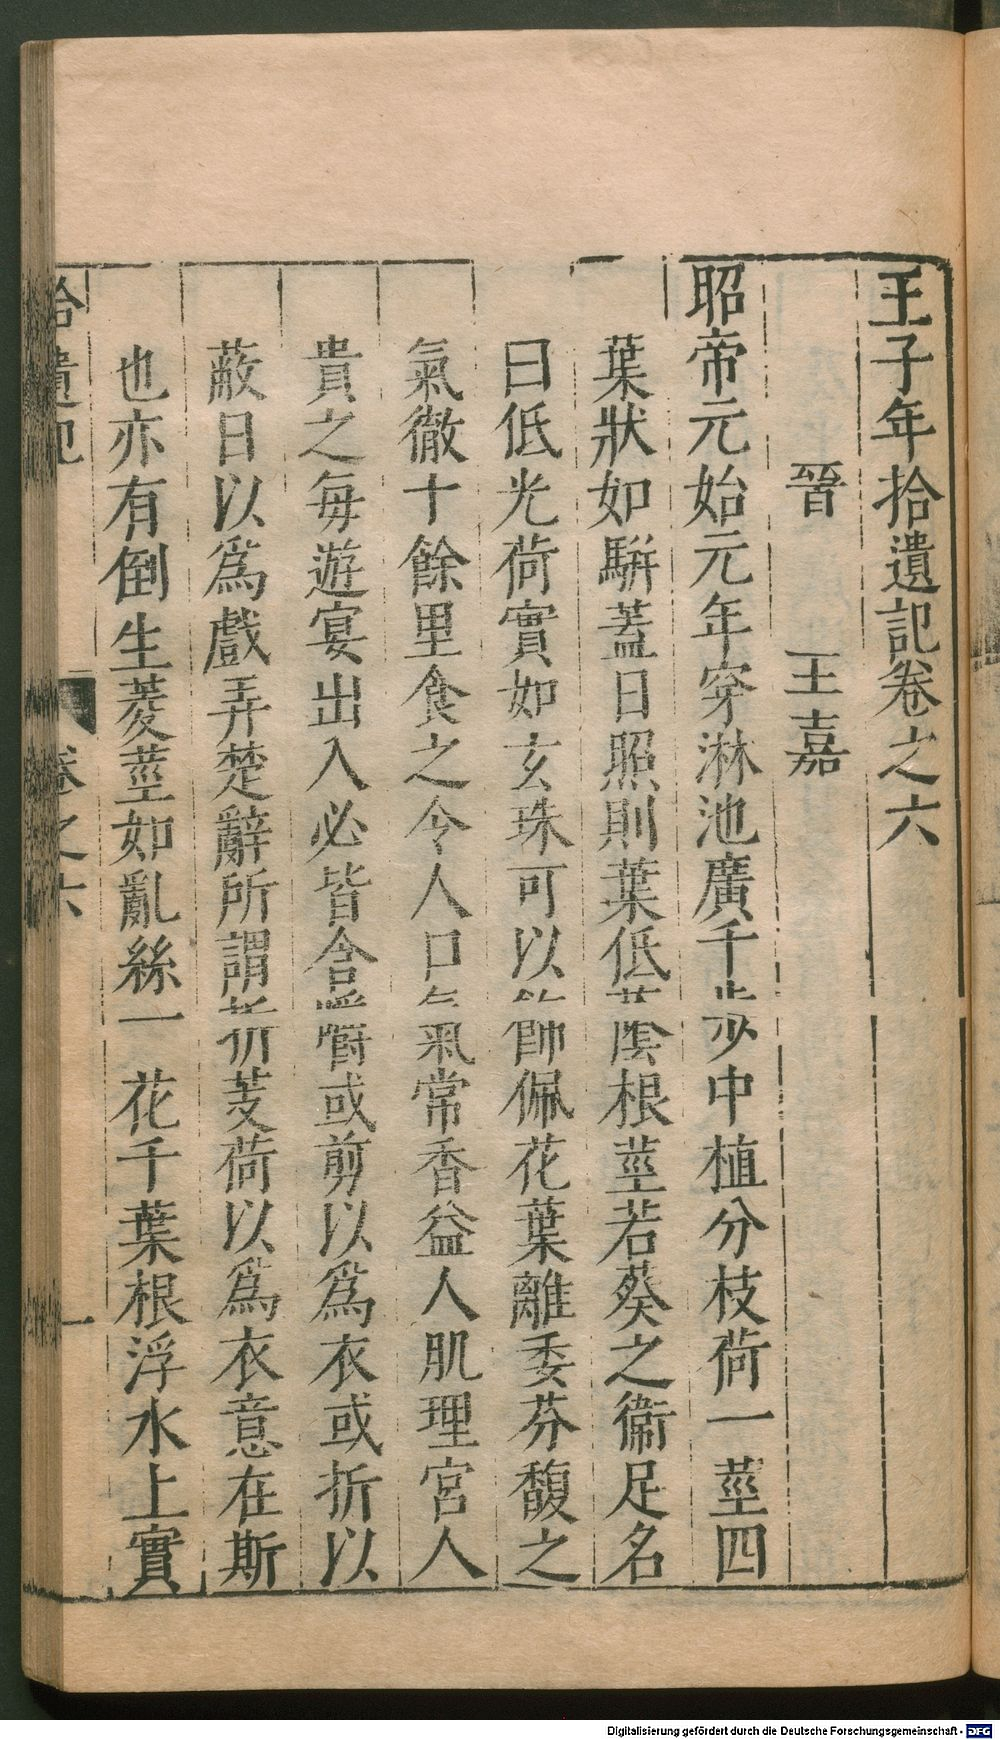 王子年拾遺記卷之六
晉　王嘉
昭帝元始元年穿淋池廣千步中植分枝荷一莖四
葉狀如駢蓋日照則葉低蔭根莖若葵之衞足名
曰低光荷實如玄珠可以飾佩花葉離委芬馥之
氣徹十餘里食之令人口氣常香益人肌理宮人
貴之每遊宴出入必皆含嚼或剪以爲衣或折以
蔽日以爲戲弄楚辭所謂折芰荷以爲衣意在斯
也亦有倒生菱莖如亂絲一花千葉根浮水上實
拾遺記　卷之六　一
Digitalisierung gefördert durch die Deutsche Forschungsgemeinschaft - DFG